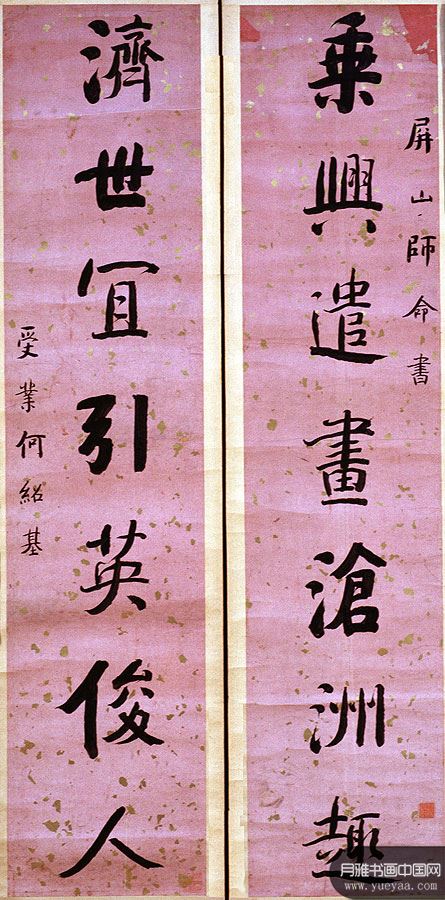 屏山師命書
乘興遣畫滄洲趣
濟世宜引英俊人
受業何紹基
月雅书画中国网
www.yueyaa.com